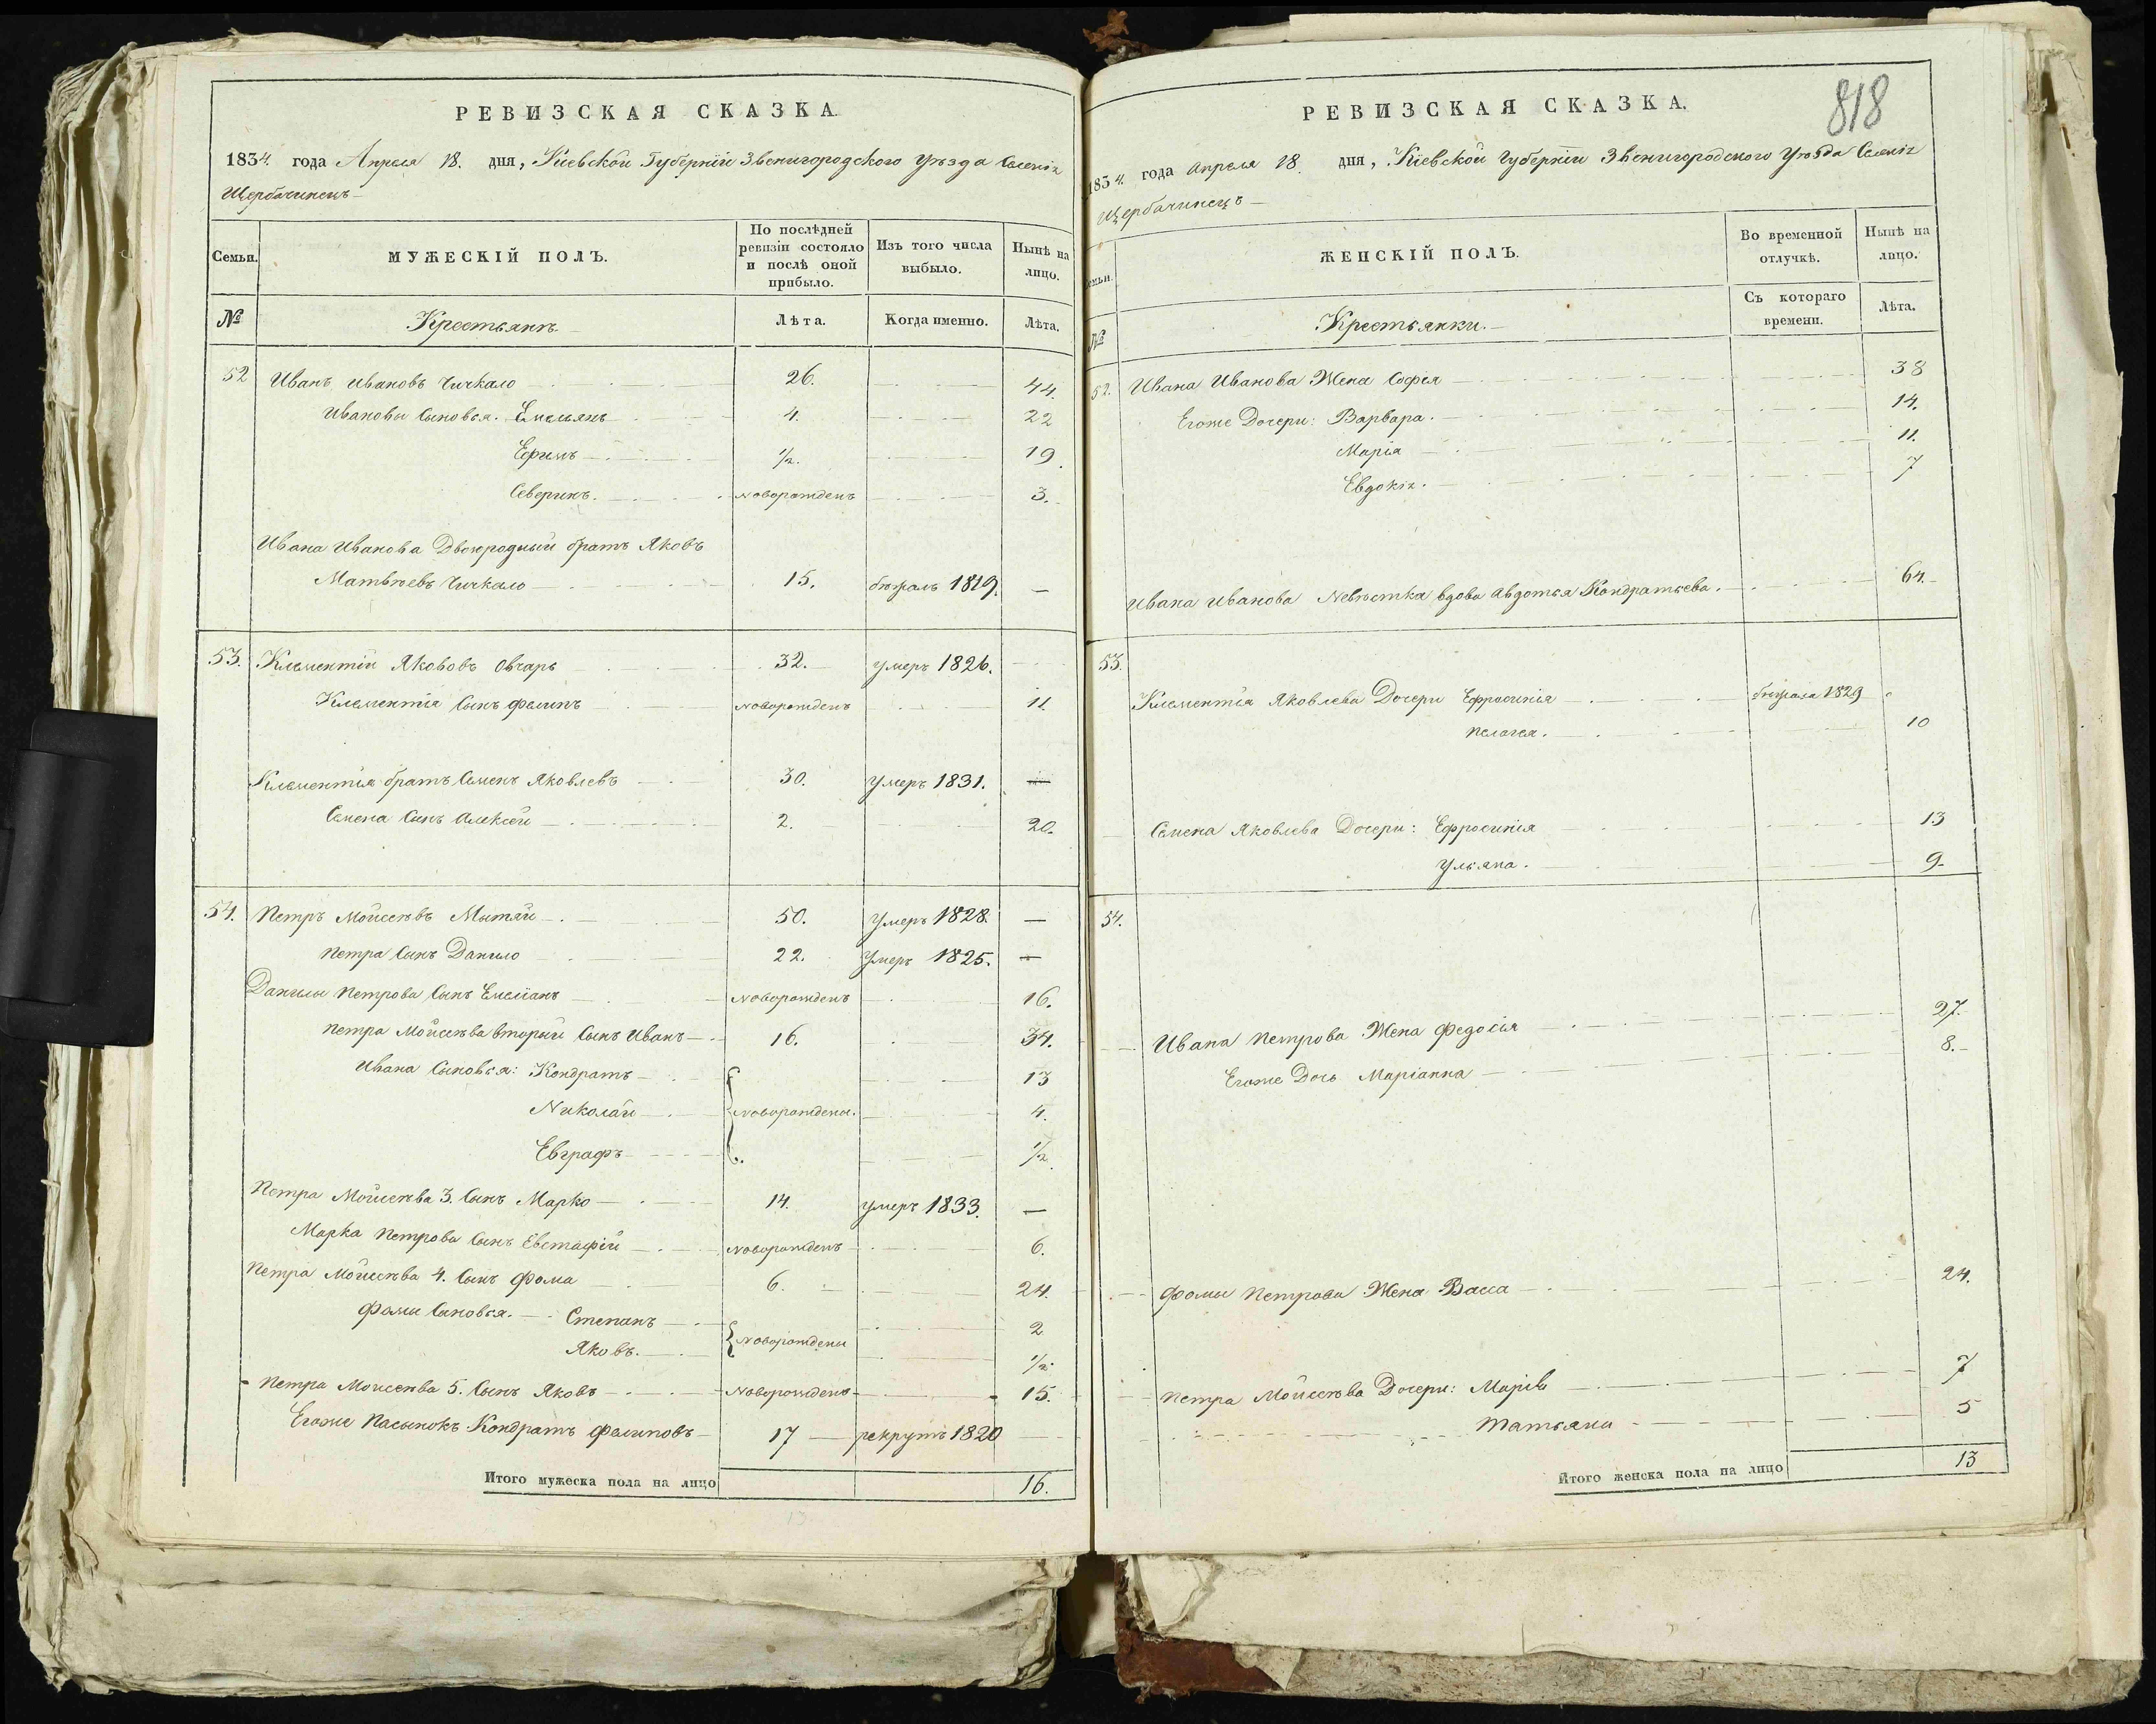 РЕВИЗСКАЯ СКАЗКА.
1834. года Апреля 18. дня, Кіевской Губерніи Звенигородского Уѣзда Селенія
Щербачинецъ
Семьи. МУЖЕСКІЙ ПОЛЪ. По послѣдней ревизіи состояло и послѣ оной прибыло. Изъ того числа выбыло. Нынѣ на лицо.
№ Крестьянъ. Лѣта. Когда именно. Лѣта.
52 Иванъ Ивановъ Чичкало 26. 44.
Ивановы Сыновья. Емельянъ 4. 22
Ефимъ 1/2. 19.
Северинъ. новорожденъ 3.
Ивана Иванова Двоюродный братъ Яковъ
Матвѣевъ Чичкало 15. бѣжалъ 1819. —
53. Клементій Якововъ Овчаръ 32. умеръ 1826.
Клементія Сынъ Филипъ новорожденъ 11.
Клементія братъ Семенъ Яковлевъ 30. умеръ 1831. —
Семена Сынъ Алексей 2. 20.
54. Петръ Мойсеѣвъ Мытай 50. умеръ 1828. —
Петра Сынъ Данило 22. умеръ 1825. —
Данилы Петрова Сынъ Емеліанъ новорожденъ 16.
Петра Мойсеѣва вторый Сынъ Иванъ 16. 34.
Ивана Сыновья: Кондратъ 13
Николай новорождены. 4.
Евграфъ 1/2.
Петра Мойсеѣва 3. Сынъ Марко 14. умеръ 1833. —
Марка Петрова Сынъ Евстафій новорожденъ 6.
Петра Мойсеѣва 4. Сынъ Фома 6. 24.
Фомы Сыновья. Степанъ 2
Яковъ. новорождены 1/2.
Петра Мойсеѣва 5. Сынъ Яковъ новорожденъ 15.
Егоже Пасынокъ Кондратъ Филиповъ 17 рекрутъ 1820
Итого мужеска пола на лицо 16.
818
РЕВИЗСКАЯ СКАЗКА.
1834. года Апреля 18. дня, Кіевской Губерніи Звенигородского Уѣзда Селенія
Щербачинецъ
Семьи. ЖЕНСКІЙ ПОЛЪ. Во временной отлучкѣ. Нынѣ на лицо.
№ Крестьянки. Съ котораго времени. Лѣта.
52. Ивана Иванова Жена Софья 38
Егоже Дочери: Варвара. 14.
Марія 11.
Евдокія. 7
Ивана Иванова Невѣстка вдова Авдотья Кондратьева. 64.
53.
Клементія Яковлева Дочери Ефросинія бѣжала 1829
Пелагея. 10
Семена Яковлева Дочери: Ефросинія 13
Ульяна. 9.
54.
Ивана Петрова Жена Федосія 27.
Егоже Дочь Маріанна 8.
Фомы Петрова Жена Васса 24.
Петра Мойсеѣва Дочери: Марія 7
Татьяна 5
Итого женска пола на лицо 13